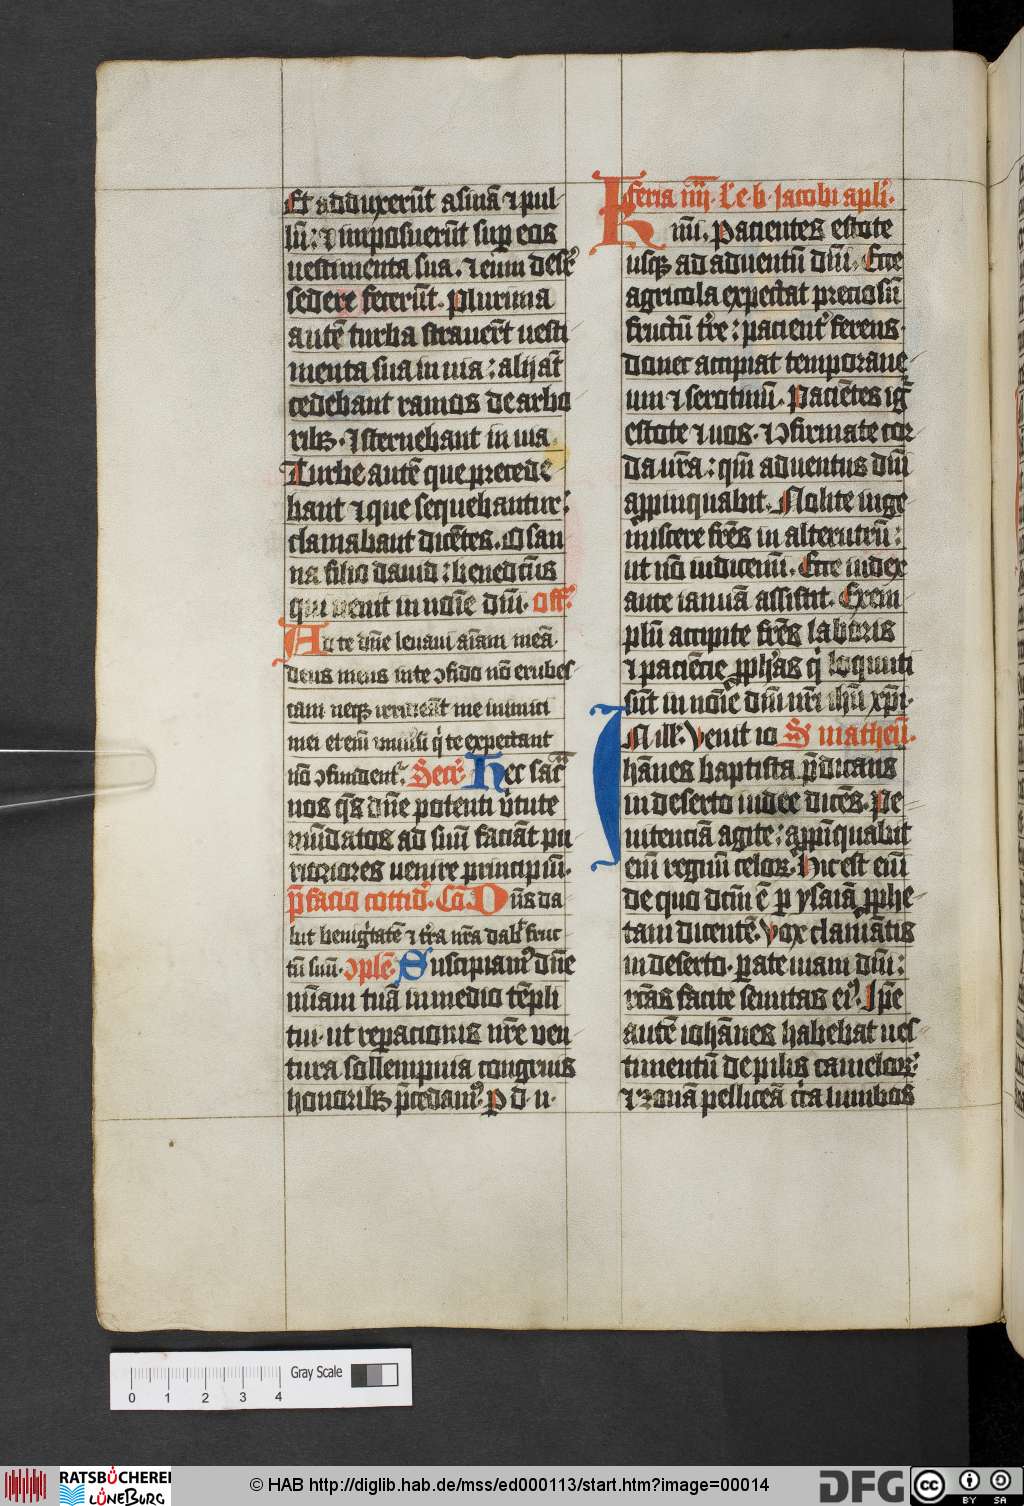 Et adduxerūt asinā ⁊ pul
lū: ⁊ imposuerūt sup eos
vestimenta sua. ⁊ eum desꝰ
sedere fecerūt. Plurima
autē turba straver̄t vesti
menta sua in via: alij at̄
cedebant ramos de arbo
ribꝫ. ⁊ sternebant in via
Turbe autē que precede
bant ⁊ que sequebantur:
clamabant dicētes. Osan
na filio david: benedictꝰ
qui venit in noīe dn̄i. Off̄.
Ad te dn̄e levavi aīam meā.
deus meus in te ↄfido nō erubes
cam neqꝫ irrideāt me inimici
mei etem̄ universi q̇ te expectant
nō ↄfundentᷣ. Secᷣ. Hec sac̄
nos q̄s dn̄e potenti v̇tute
mūdatos ad suū faciāt pu
ritiores venire principiū.
P̄facio cottidᷣ. Cō. Dn̄s da
bit benigᷓtatē ⁊ tr̄a nr̄a dabᷣ fruc
tū suū. ↄplē. Suscipiamꝰ dn̄e
mīam tuā in medio tēpli
tui. ut reparacionis nr̄e ven
tura sollempnia congruis
honoribꝫ p̄cedamꝰ. P d. n.
feria iiij. L'c. b. Jacobi apli.
Kmi. Pacientes estote
usqꝫ ad adventū dn̄i. Ecce
agricola expectat preciosū
fructū tr̄e: pacientᷣ ferens.
donec accipiat temporane
um ⁊ serotinū. Paciētes igᷣ
estote ⁊ vos. ⁊ ↄfirmate cor
da vr̄a: qm̄ adventus dn̄i
appinquabit. Nolite inge
miscere fr̄es in alterutrū:
ut nō iudicemī. Ecce iudex
ante ianuā assistit. Exem
plū accipite fr̄es laboris
⁊ paciēcie ꝓph̄as q̇ loquuti
sūt in noīe dn̄i nr̄i ihū xp̄i.
In ill'. Venit io S. matheū.
hānes baptista p̄dicans
in deserto iudee dicēs. Pe
nitenciā agite: appīquabit
em̄ regnū celoꝝ. Hic est em̄
de quo dictū ē ꝑ ysaiā ꝓphe
tam dicentē. Vox clamātis
in deserto. parate viam dn̄i:
rectas facite semitas eiꝰ. Ip̄e
autē iohānes habebat ves
timentū de pilis cameloꝝ.
⁊ zonā pelliceā cīa lumbos
Gray Scale
0 1 2 3 4
RATSBÜCHEREI
LÜNEBURG
© HAB http://diglib.hab.de/mss/ed000113/start.htm?image=00014
DFG
cc
BY SA